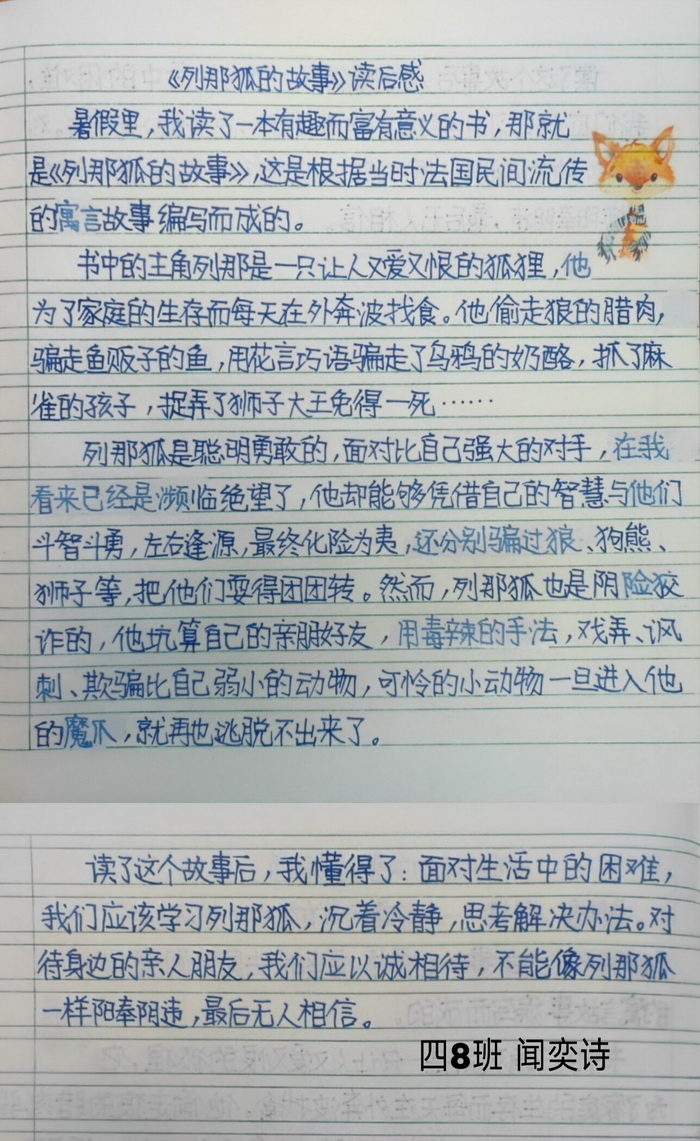 《列那狐的故事》读后感
暑假里，我读了一本有趣而富有意义的书，那就
是《列那狐的故事》，这是根据当时法国民间流传
的寓言故事编写而成的。
书中的主角列那是一只让人又爱又恨的狐狸，他
为了家庭的生存而每天在外奔波找食。他偷走狼的腊肉，
骗走鱼贩子的鱼，用花言巧语骗走了乌鸦的奶酪，抓了麻
雀的孩子，捉弄了狮子大王免得一死……
列那狐是聪明勇敢的，面对比自己强大的对手，在我
看来已经是濒临绝望了，他却能够凭借自己的智慧与他们
斗智斗勇，左右逢源，最终化险为夷，还分别骗过狼、狗熊、
狮子等，把他们耍得团团转。然而，列那狐也是阴险狡
诈的，他坑算自己的亲朋好友，用毒辣的手法，戏弄、讽
刺、欺骗比自己弱小的动物，可怜的小动物一旦进入他
的魔爪，就再也逃脱不出来了。
读了这个故事后，我懂得了：面对生活中的困难，
我们应该学习列那狐，沉着冷静，思考解决办法。对
待身边的亲人朋友，我们应以诚相待，不能像列那狐
一样阳奉阴违，最后无人相信。
四8班 闻奕诗